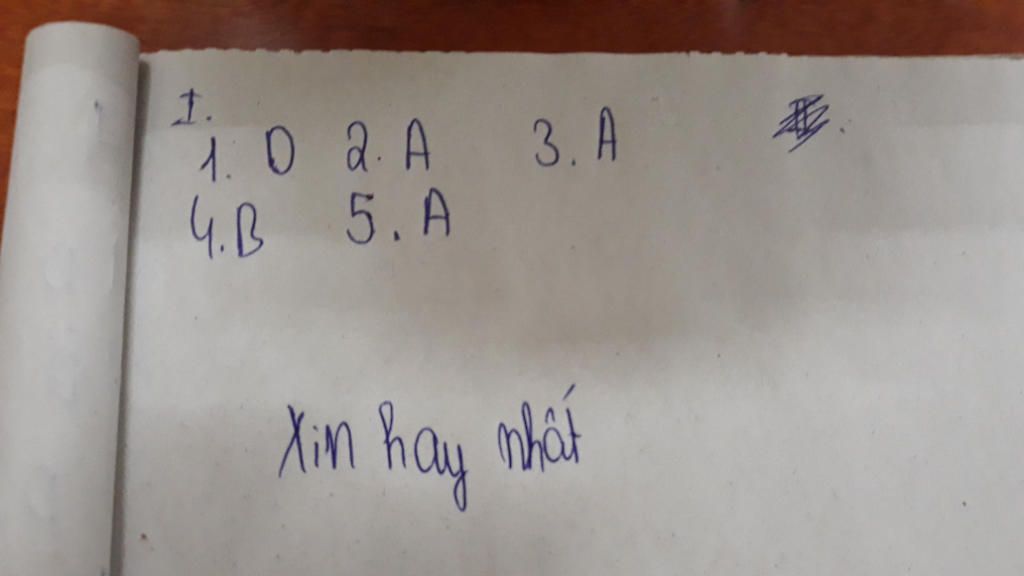 I.
1. D 2. A 3. A
4. B 5. A
Xin hay nhất